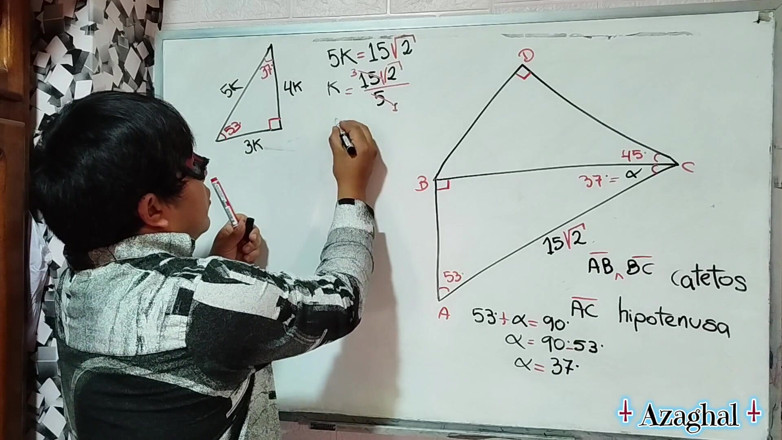 37
5K
4K
53
3K
5K = 15√2
K = 15√2 / 5
3
1
D
B
C
A
45°
37° = α
15√2
53°
AB ∧ BC catetos
AC hipotenusa
53 + α = 90°
α = 90 - 53°
α = 37°
Azaghal